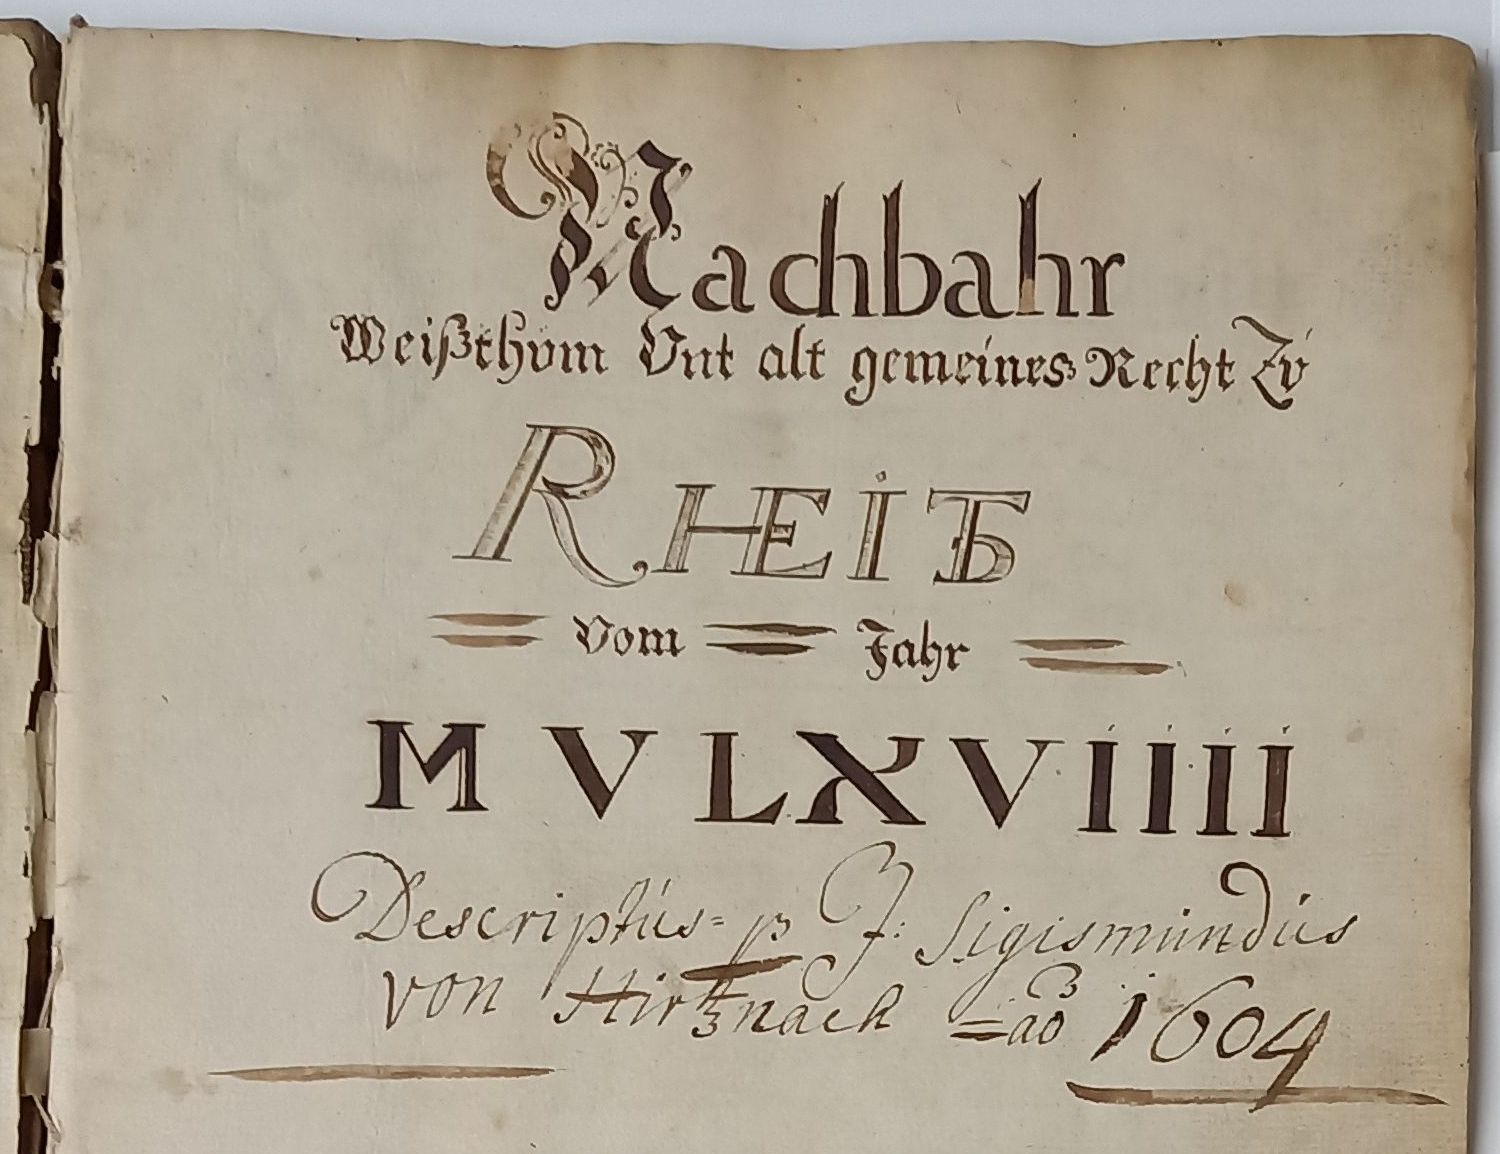 Nachbahr
Weißthum Vnt alt gemeines Recht Zu
RHEIDT
= Vom = Jahr =
M V L X V I I I I
Descriptús= p J: Sigismúndús
von Hirtznach =aō 1604